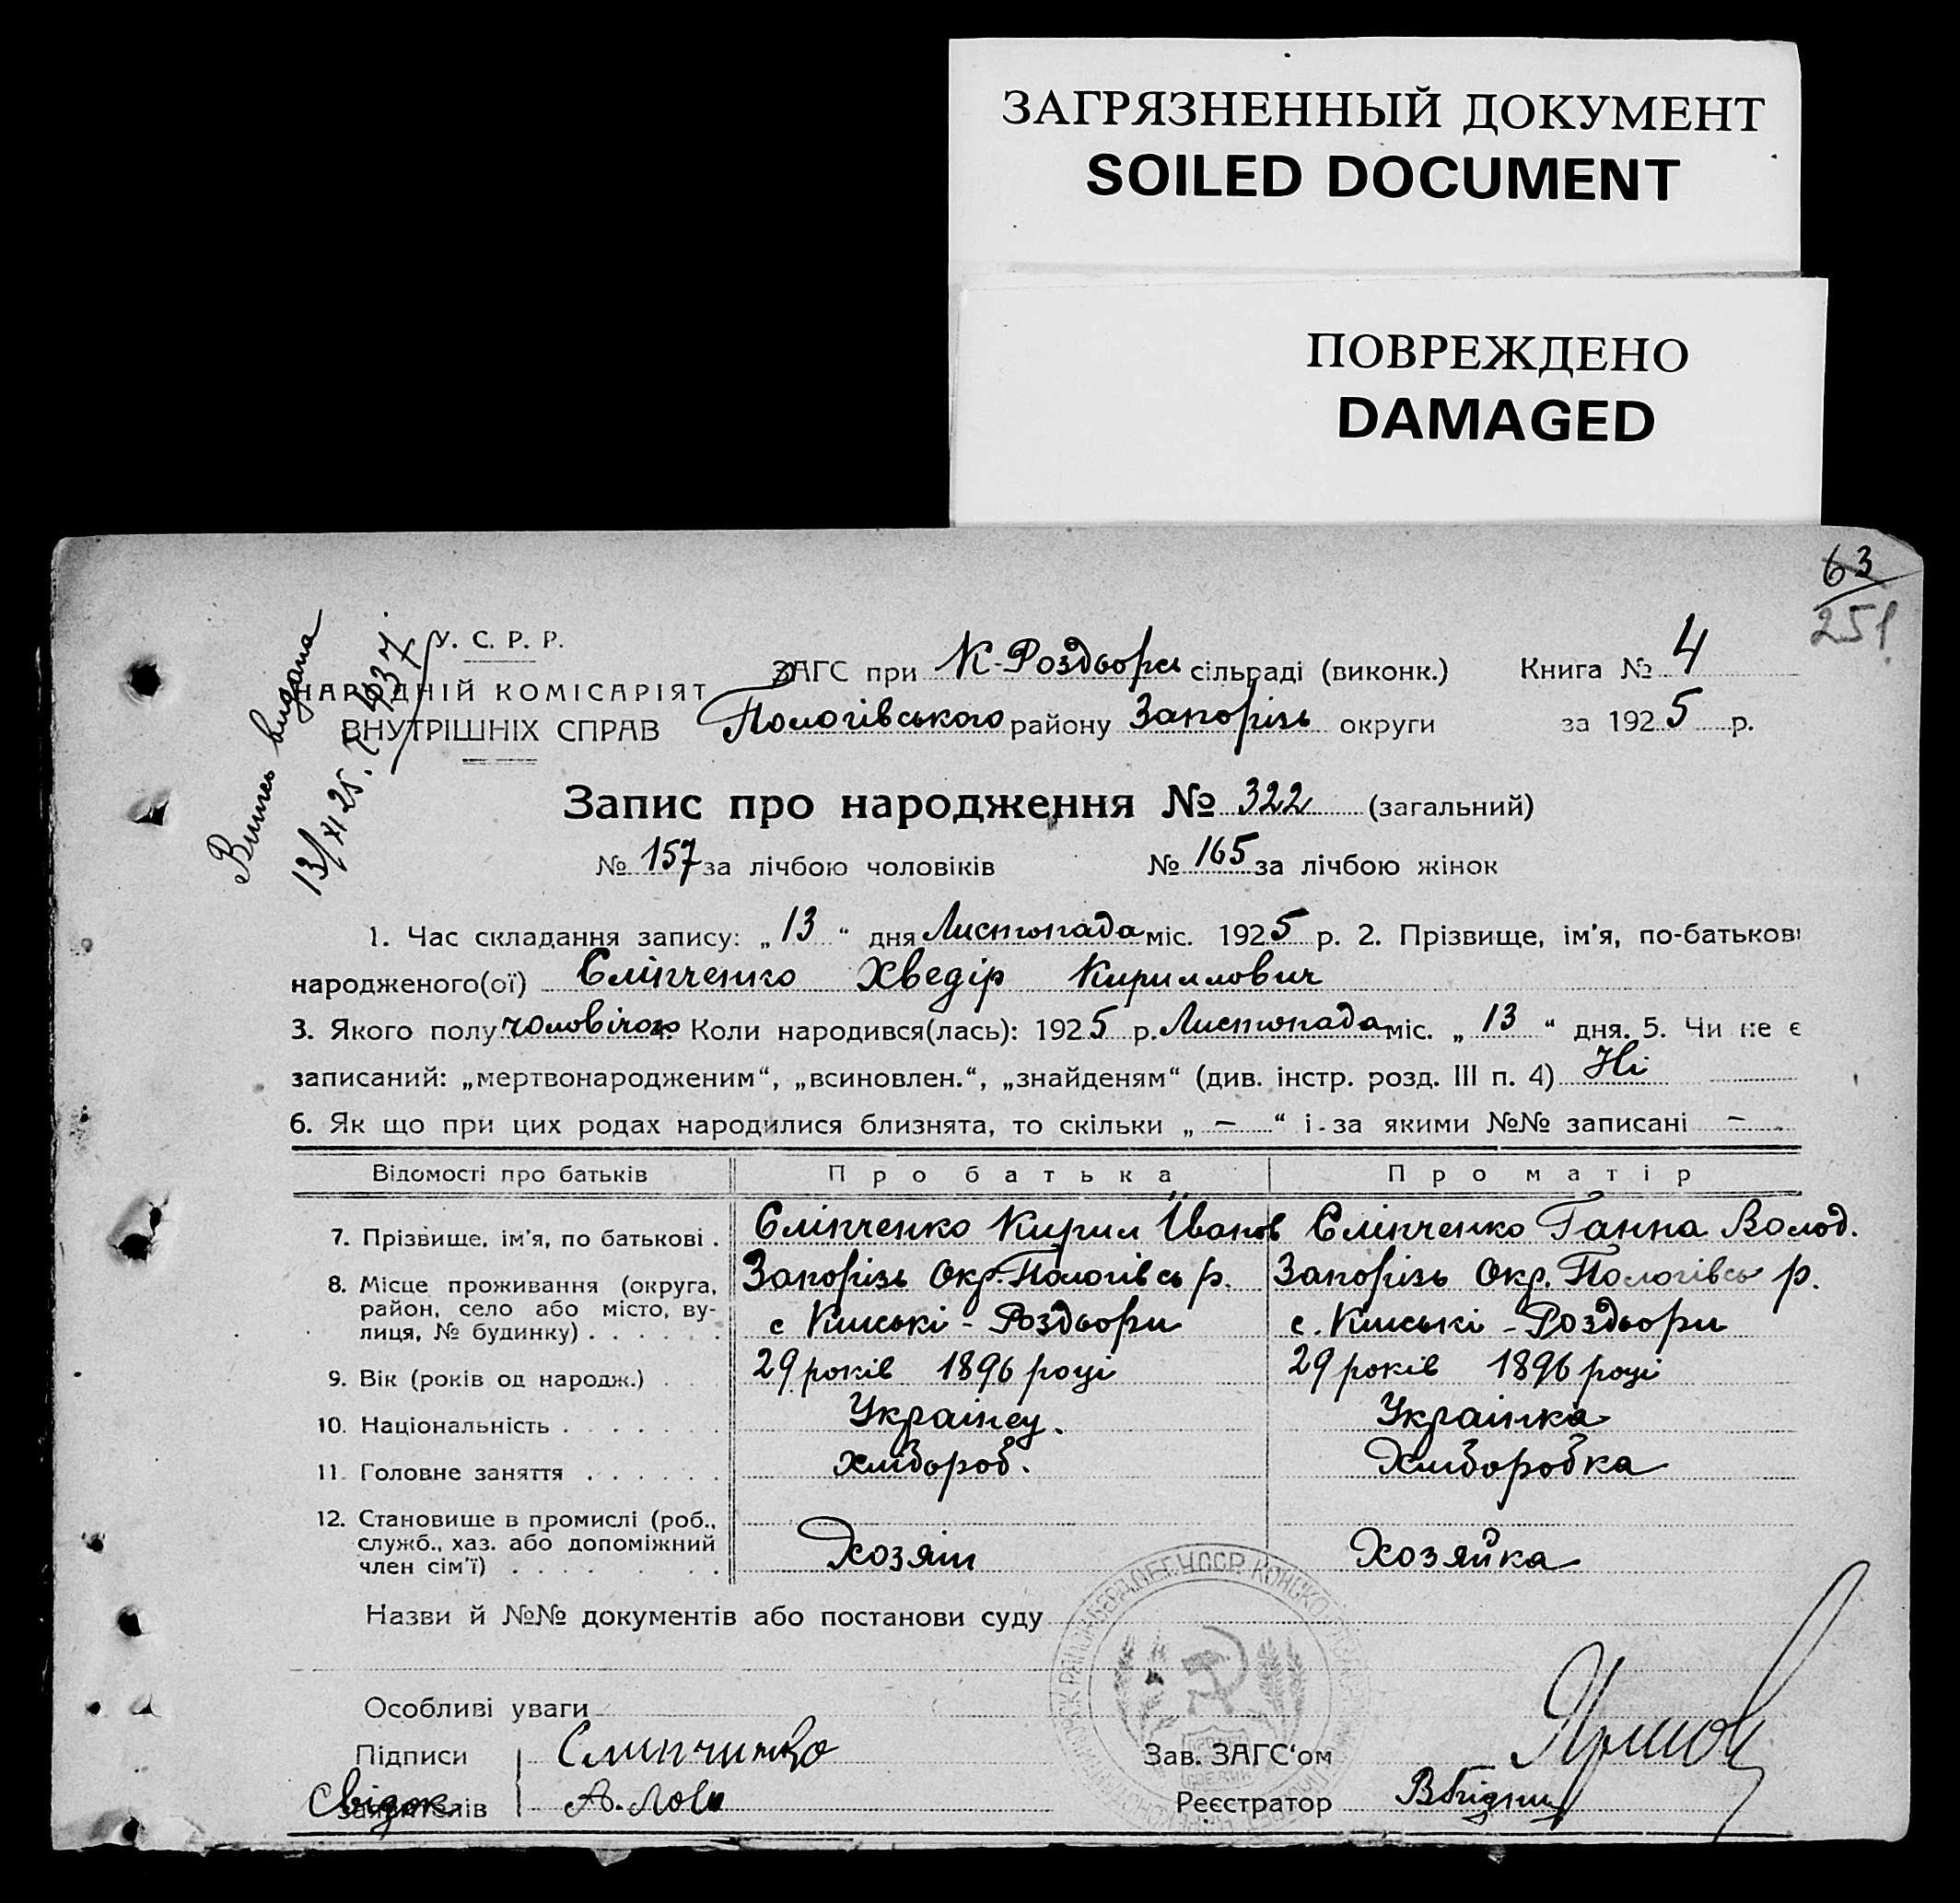 ЗАГРЯЗНЕННЫЙ ДОКУМЕНТ
SOILED DOCUMENT
ПОВРЕЖДЕНО
DAMAGED
63
251
Випись видана
13/XI 25.
У. С. Р. Р.
НАРОДНІЙ КОМІСАРІЯТ
ВНУТРІШНІХ СПРАВ
ЗАГС при К-Роздори сільраді (виконк.) Книга № 4
Пологівського району Запорізь округи за 1925 р.
Запис про народження № 322 (загальний)
№ 157 за лічбою чоловіків № 165 за лічбою жінок
1. Час складання запису: „13“ дня Листопада міс. 1925 р. 2. Прізвище, ім'я, по-батькові
народженого(ої) Сліпченко Хведір Кириллович
3. Якого полу чоловічою 4. Коли народився(лась): 1925 р. Листопада міс. „13“ дня. 5. Чи не є
записаний: „мертвонародженим“, „всиновлен.“, „знайденям“ (див. інстр. розд. III п. 4) Ні
6. Як що при цих родах народилися близнята, то скільки „—“ і за якими №№ записані —
Відомості про батьків Про батька Про матір
7. Прізвище, ім'я, по батькові . Сліпченко Кирил Іванов Сліпченко Ганна Волод.
8. Місце проживання (округа, Запорізь Окр. Пологівсь р. Запорізь Окр. Пологівсь р.
район, село або місто, ву-
лиця, № будинку) . . . . . . с Кінські - Роздори с. Кінські - Роздори
9. Вік (років од народж.) . 29 років 1896 році 29 років 1896 році
10. Національність . . . . . . . Українец. Українка
11. Головне заняття . . . . . . хлібороб. Хліборобка
12. Становище в промислі (роб.,
служб., хаз. або допоміжний
член сім'ї) . . . . . . . Хозяін Хозяйка
Назви й №№ документів або постанови суду
Особливі уваги
Підписи Слипченко Зав. ЗАГС'ом
Свідок
заявителів Реєстратор